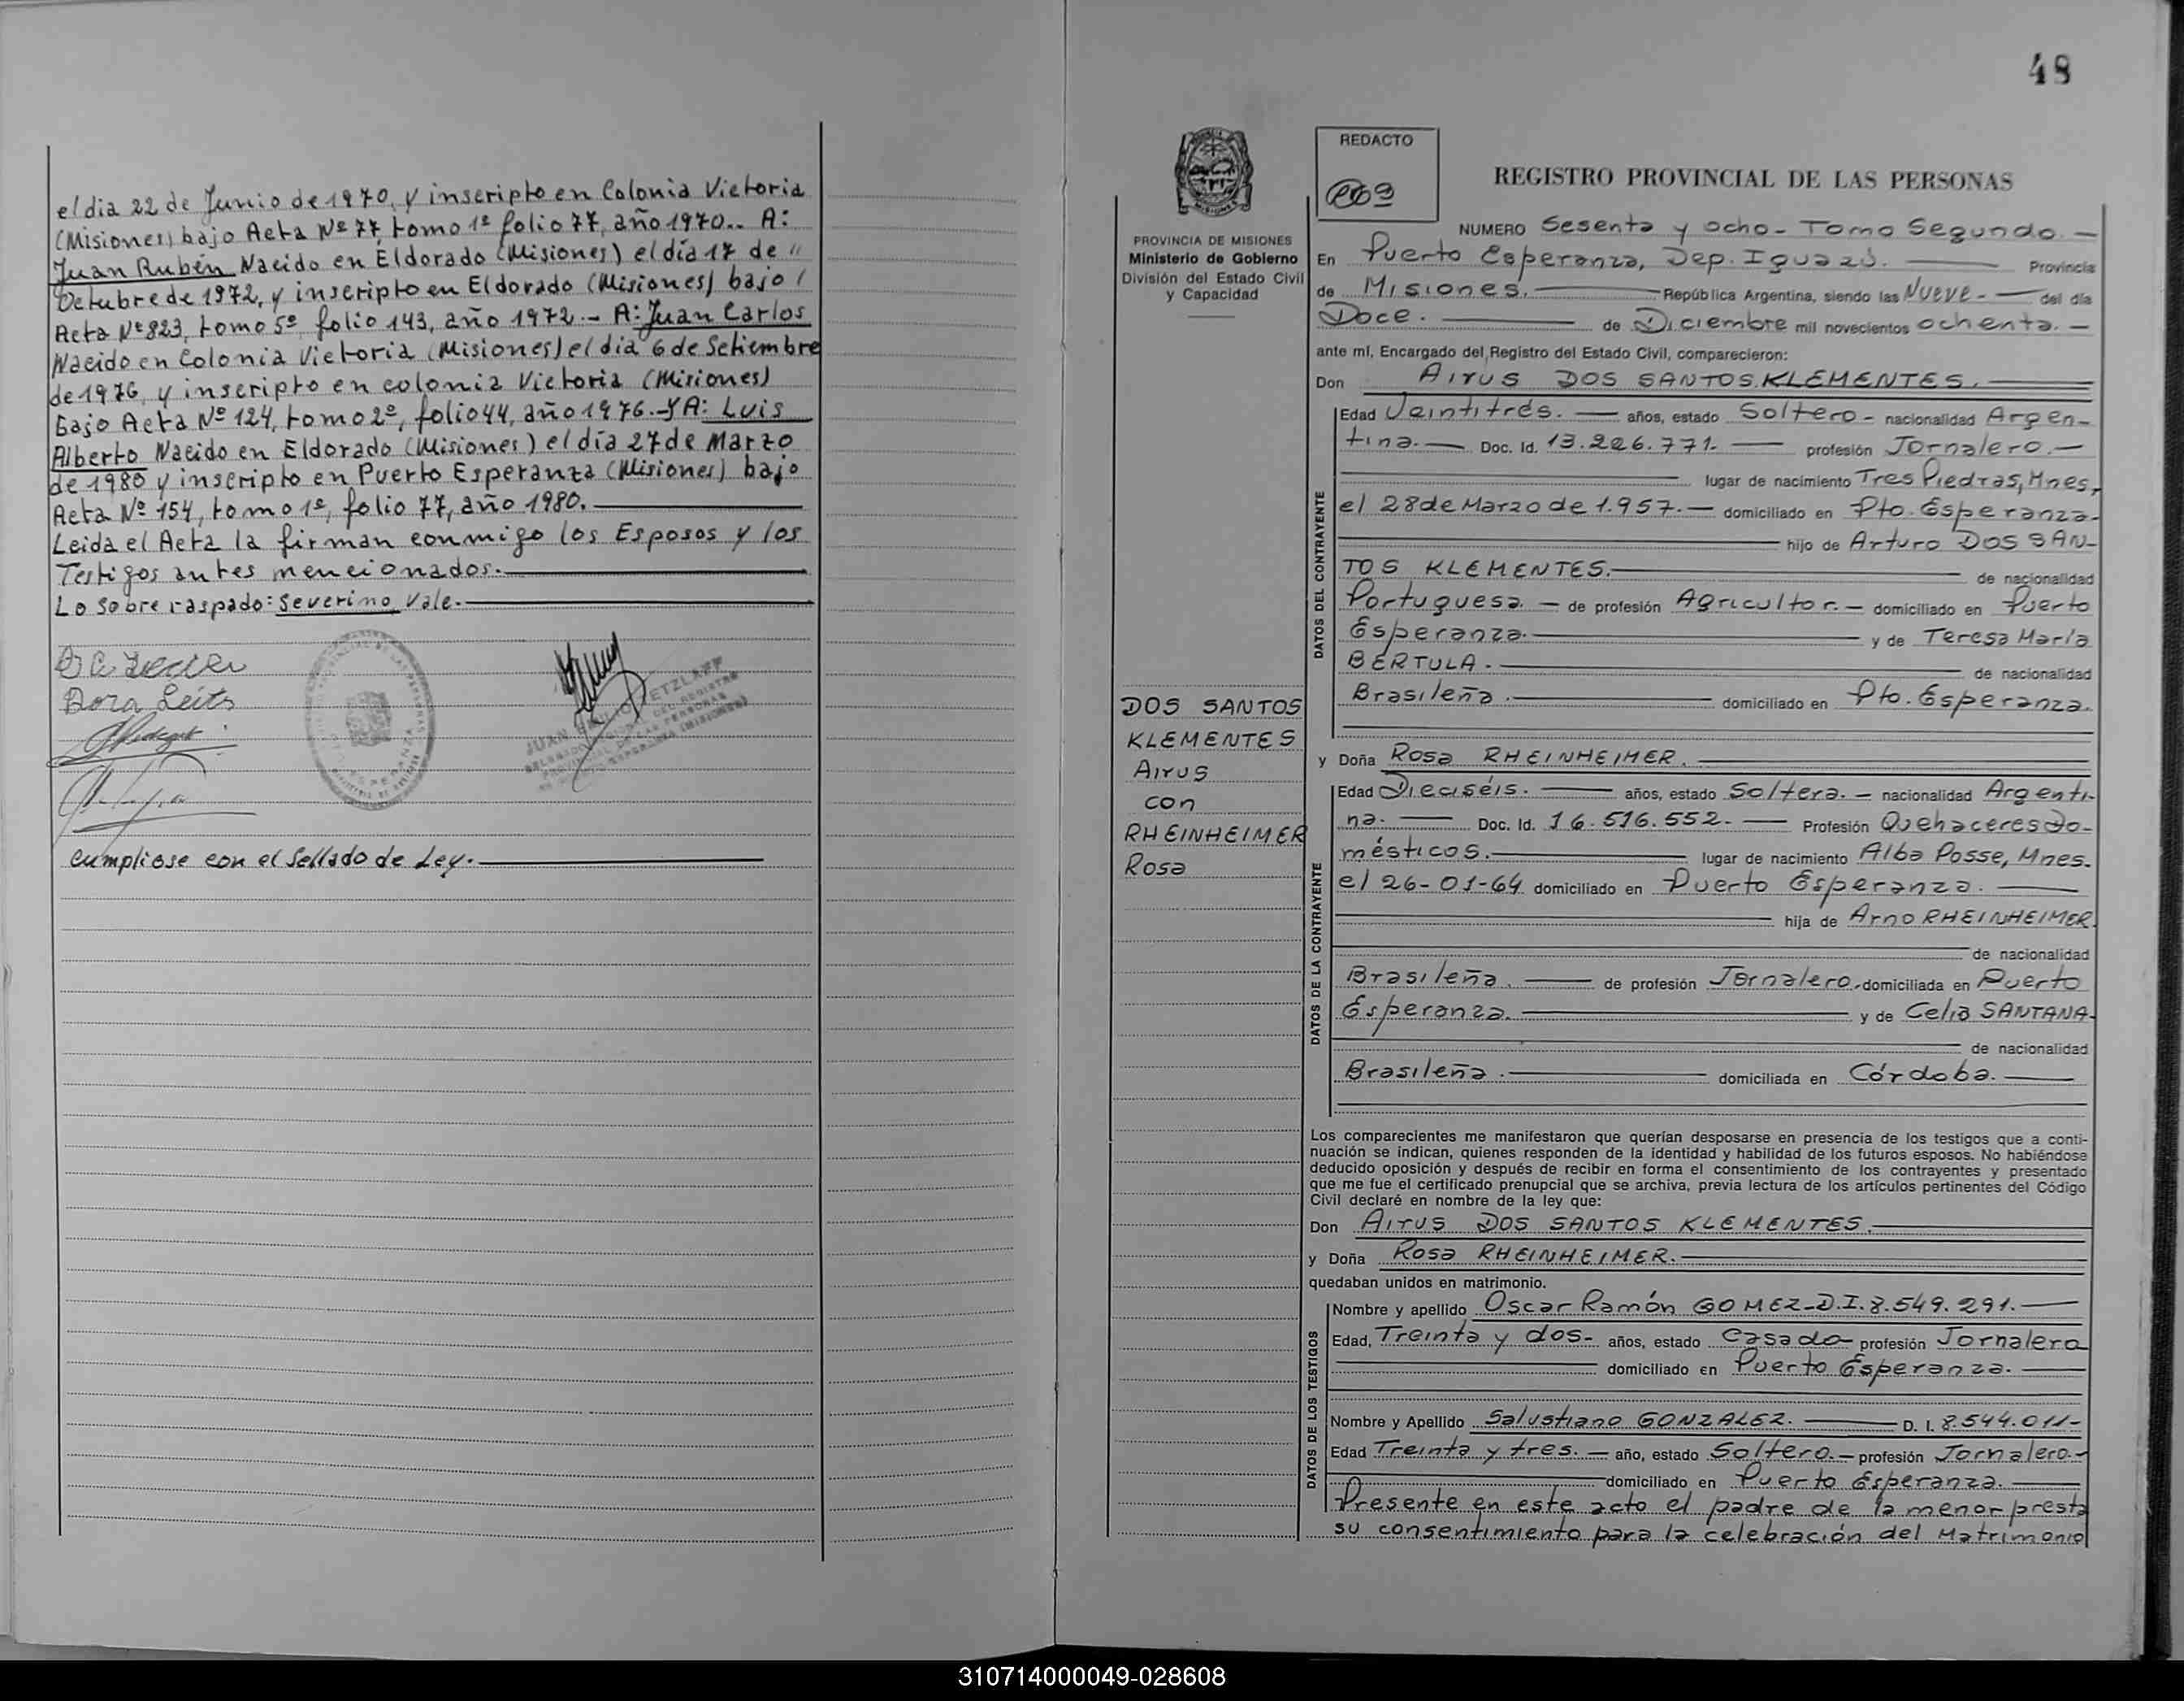 el dia 22 de Junio de 1970, y inscripto en Colonia Victoria
(Misiones) bajo Acta Nº 77, tomo 1º folio 77, año 1970.. A:
Juan Rubén Nacido en Eldorado (Misiones) el día 17 de "
Octubre de 1972, y inscripto en Eldorado (Misiones) bajo /
Acta Nº 823, tomo 5º folio 143, año 1972.- A: Juan Carlos
Nacido en Colonia Victoria (Misiones) el dia 6 de Setiembre
de 1976, y inscripto en colonia Victoria (Misiones)
bajo Acta Nº 124, tomo 2º, folio 44, año 1976.- y A: Luis
Alberto Nacido en Eldorado (Misiones) el día 27 de Marzo
de 1980 y inscripto en Puerto Esperanza (Misiones) bajo
Acta Nº 154, tomo 1º, folio 77, año 1980.
Leida el Acta la firman conmigo los Esposos y los
Testigos antes mencionados.
Lo sobre raspado: Severino Vale.
Dora Leits
JUAN ETZLAFF
cumpliose con el Sellado de Ley.
48
PROVINCIA DE MISIONES
Ministerio de Gobierno
División del Estado Civil
y Capacidad
DOS SANTOS
KLEMENTES
Airus
con
RHEINHEIMER
Rosa
REDACTO
REGISTRO PROVINCIAL DE LAS PERSONAS
NUMERO Sesenta y ocho - Tomo Segundo.-
En Puerto Esperanza, Dep. Iguazú. Provincia
de Misiones. República Argentina, siendo las Nueve - del día
Doce. de Diciembre mil novecientos ochenta.-
ante mí, Encargado del Registro del Estado Civil, comparecieron:
Don Airus DOS SANTOS KLEMENTES.
DATOS DEL CONTRAYENTE
Edad Veintitrés. años, estado Soltero - nacionalidad Argen-
tina. Doc. Id. 13.226.771. profesión Jornalero.-
lugar de nacimiento Tres Piedras, Mnes,
el 28 de Marzo de 1.957.- domiciliado en Pto. Esperanza-
hijo de Arturo DOS SAN-
TOS KLEMENTES. de nacionalidad
Portuguesa - de profesión Agricultor.- domiciliado en Puerto
Esperanza. y de Teresa María
BÉRTULA. de nacionalidad
Brasileña. domiciliado en Pto. Esperanza.
y Doña Rosa RHEINHEIMER.
DATOS DE LA CONTRAYENTE
Edad Dieciséis. años, estado Soltera.- nacionalidad Argenti-
na. Doc. Id. 16.516.552. Profesión Quehaceres do-
mésticos. lugar de nacimiento Alba Posse, Mnes.
el 26-01-64 domiciliado en Puerto Esperanza.
hija de Arno RHEINHEIMER
de nacionalidad
Brasileña. de profesión Jornalero. domiciliada en Puerto
Esperanza. y de Celia SANTANA-
de nacionalidad
Brasileña. domiciliada en Córdoba.
Los comparecientes me manifestaron que querían desposarse en presencia de los testigos que a conti-
nuación se indican, quienes responden de la identidad y habilidad de los futuros esposos. No habiéndose
deducido oposición y después de recibir en forma el consentimiento de los contrayentes y presentado
que me fue el certificado prenupcial que se archiva, previa lectura de los artículos pertinentes del Código
Civil declaré en nombre de la ley que:
Don Airus DOS SANTOS KLEMENTES.
y Doña Rosa RHEINHEIMER.
quedaban unidos en matrimonio.
DATOS DE LOS TESTIGOS
Nombre y apellido Oscar Ramón GOMEZ - D.I. 8.549.291.
Edad, Treinta y dos - años, estado Casado - profesión Jornalero
domiciliado en Puerto Esperanza.
Nombre y Apellido Salustiano GONZALEZ. D. I. 8.544.011-
Edad Treinta y tres.- año, estado Soltero.- profesión Jornalero.-
domiciliado en Puerto Esperanza.
Presente en este acto el padre de la menor presta
su consentimiento para la celebración del Matrimonio
310714000049-028608